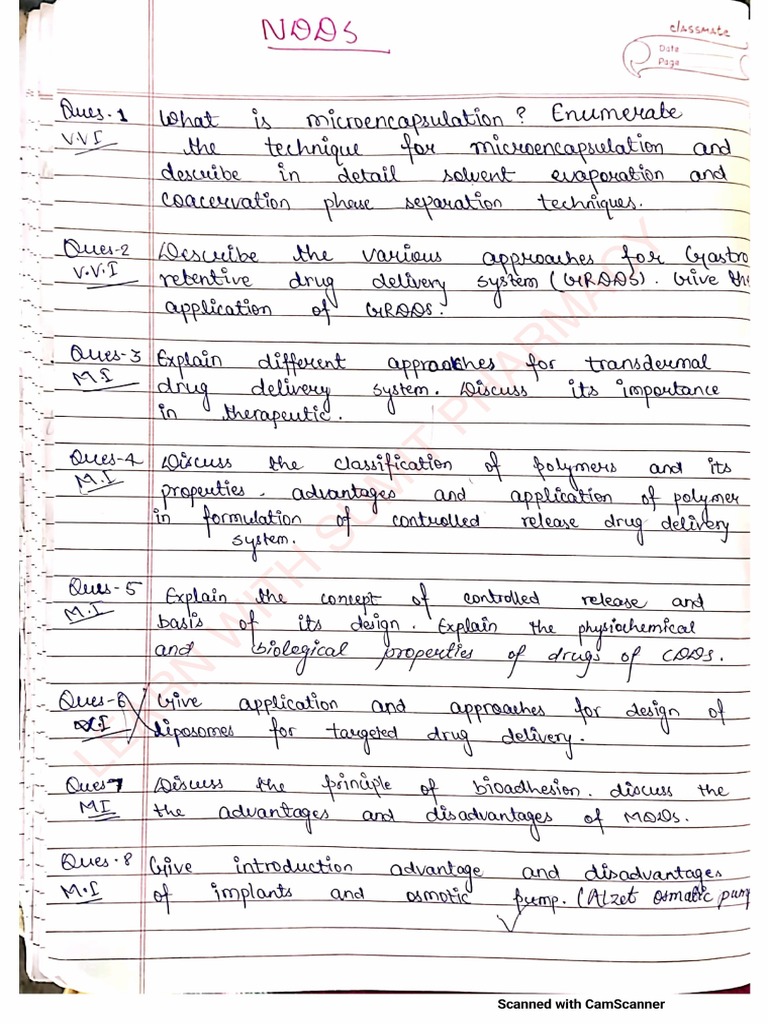 NDDS
classmate
Date
Page
Ques-1 What is microencapsulation? Enumerate
V.V.I the technique for microencapsulation and
describe in detail solvent evaporation and
coacervation phase separation techniques.
Ques-2 Describe the various approaches for Gastro
V.V.I retentive drug delivery system (GRDDS). Give the
application of GRDDS.
Ques-3 Explain different approaches for transdermal
M.I drug delivery system. Discuss its importance
in therapeutic.
Ques-4 Discuss the classification of polymers and its
M.I properties. advantages and application of polymer
in formulation of controlled release drug delivery
system.
Ques-5 Explain the concept of controlled release and
M.I basis of its design. Explain the physiochemical
and biological properties of drugs of CDDS.
Ques-6 Give application and approaches for design of
I liposomes for targeted drug delivery.
Ques 7 Discuss the principle of bioadhesion. discuss the
MI the advantages and disadvantages of MDDS.
Ques.8 Give introduction advantage and disadvantages
M.I of implants and osmotic pump. (Alzet osmatic pum
LEARN WITH SUMIT PHARMACY
Scanned with CamScanner